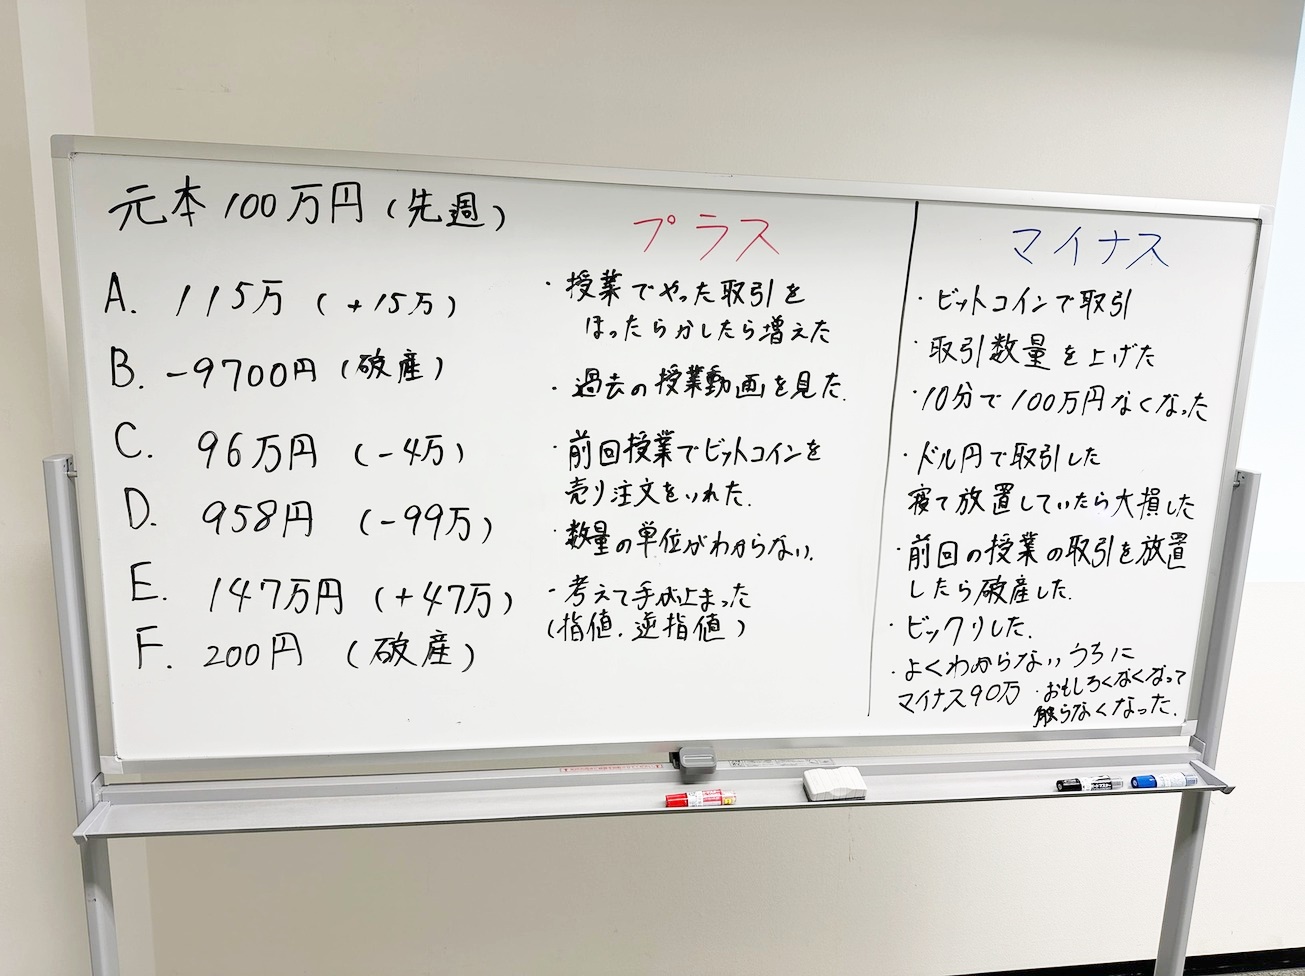 元本100万円(先週)
A. 115万 (+15万)
B. -9700円 (破産)
C. 96万円 (-4万)
D. 958円 (-99万)
E. 147万円 (+47万)
F. 200円 (破産)
プラス
・授業でやった取引を
ほったらかしたら増えた
・過去の授業動画を見た.
・前回授業でビットコインを
売り注文をいれた.
・数量の単位がわからない.
・考えて手が止まった
(指値.逆指値)
マイナス
・ビットコインで取引
・取引数量を上げた
・10分で100万円なくなった
・ドル円で取引した
寝て放置していたら大損した
・前回の授業の取引を放置
したら破産した.
・ビックリした.
・よくわからないうちに
マイナス90万
・おもしろくなくなって
触らなくなった.